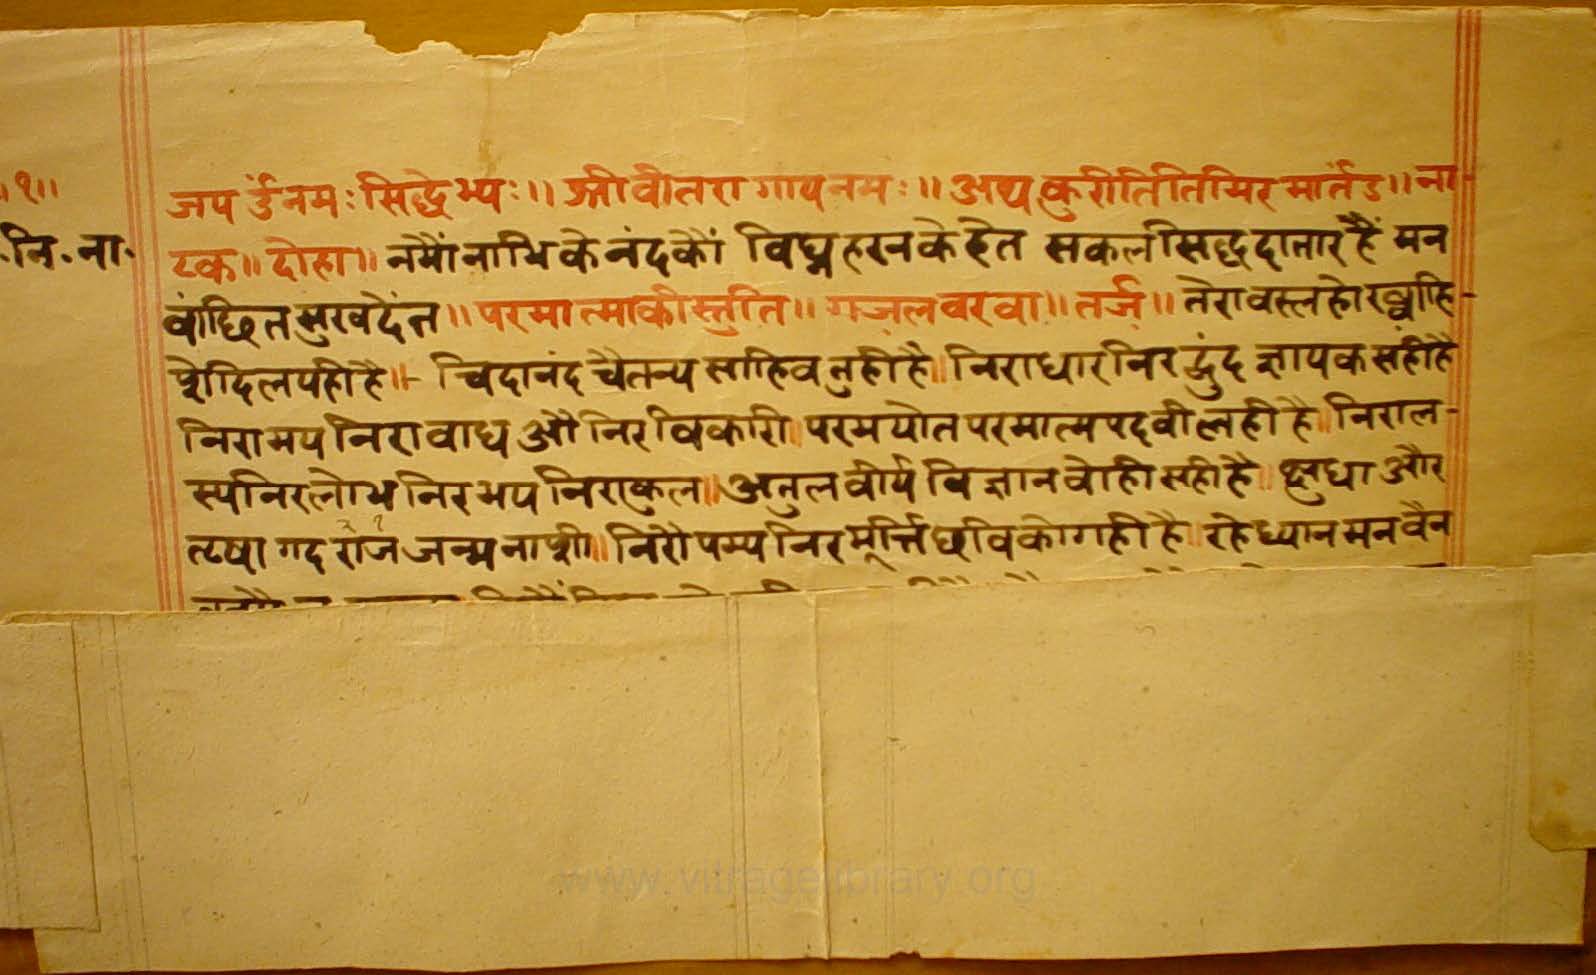 ॥१॥
जय ॐनमः सिद्धेभ्यः॥ श्रीवीतरागायनमः॥ अथ कुरीतितिमिर मार्तंड॥ ना-
.नि.ना.
टक॥ दोहा॥ नमौं नाभि के नंदकौं विघ्न हरन के हेत सकल सिद्ध दातार हैं मन
वांछित सुख देंन॥ परमात्मा की स्तुति॥ गज़ल बरवा॥ तर्ज़॥ तेरा वस्ल हो ख्वाहि-
शे दिल यही है॥- चिदानंद चैतन्य साहिव तुही है॥ निराधार निरद्वुंद ज्ञायक सही है
निरामय निरावाध औ निरविकारी॥ परमयोत परमात्म पदवी लही है॥ निराल-
स्य निरलोभ निरभय निराकुल॥ अतुल वीर्य विज्ञान वोही सही है॥ क्षुधा और
त्रषा गद जन्म नाशी॥ निरौपम्य निरमूर्त्ति छवि को गही है॥ रहे ध्यान मन वैन
www.vitragelibrary.org